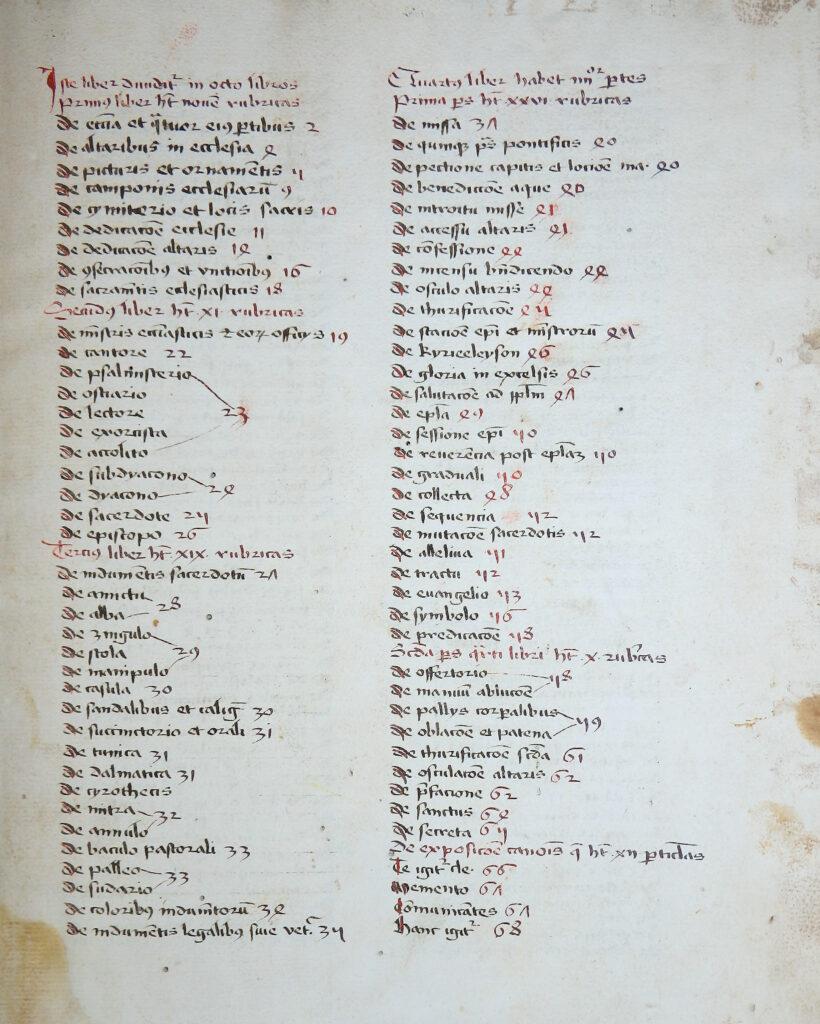 Iste liber diuidit᷑ in octo libros
Primus liber ht̄ nouē rubricas
de ecc̄ia et q̄tuor eiꝯ ꝑtibus 2
de altaribus in ecclesia 4
de picturis et ornamentis 5
de camponis ecclesiarū 9
de cymiterio et locis sacris 10
de dedicacōe ecclesie 11
de dedicacōe altaris 14
de ꝯsecracōibꝯ et vnctiōibꝯ 16
de sacramētis ecclesiasticis 18
Secūdus liber ht̄ XI rubricas
de mīstris eccl̄iasticis et eoꝝ officijs 19
de cantore 22
de psalmisterio
de ostiario
de lectore 23
de exorcista
de accolito
de subdyacono
de dyacono 24
de sacerdote 25
de episcopo 26
Tercius liber ht̄ XIX rubricas
de indumētis sacerdotū 27
de amictu
de alba 28
de zingulo
de stola 29
de manipulo
de casula 30
de sandalibus et caliḡ 30
de succinctorio et orali 31
de tunica 31
de dalmatica 31
de cyrothecis
de mitra 32
de annulo
de baculo pastorali 33
de palleo 33
de sudario
de coloribꝯ indumētorū 34
de indumētis legalibꝯ siue vet᷑. 35
Quartus liber habet iiiiᵒʳ ꝑtes
Prima ꝑs ht̄ XXVI rubricas
de missa 37
de quinqꝫ p̄s pontificis 40
de pectione capitis et locioē ma. 40
de benediccōe aque 40
de introitu misse 41
de accessu altaris 41
de cōfessione 44
de incensu bn̄dicendo 44
de osculo altaris 44
de thurificacōe 45
de stacioē ep̄i et mīstrorū 45
de kyrieeleyson 46
de gloria in excelsis 46
de salutacōe ad pp̄lm 47
de ep̄la 49
de sessione ep̄i 50
de reuerēcia post ep̄laꝫ 50
de graduali 50
de collecta 48
de sequencia 52
de mutacōe sacerdotis 52
de alleluia 51
de tractu 52
de euangelio 53
de symbolo 56
de p̄redicacōe 58
Scd̄a ꝑs q̄rti libri ht̄ X rubricas
de offertorio 58
de manuū ablucōe
de pallys corꝑalibus 59
de oblacōe et patena
de thurificacōe scd̄a 61
de osculacōe altaris 62
de p̄facione 62
de sanctus 64
de secreta 65
De exposicōe canōis q̄ ht̄ XII ꝑticl̄as
Te igit᷑ cle. 66
Memento 67
Cōmunicātes 67
Hanc igit᷑ 68